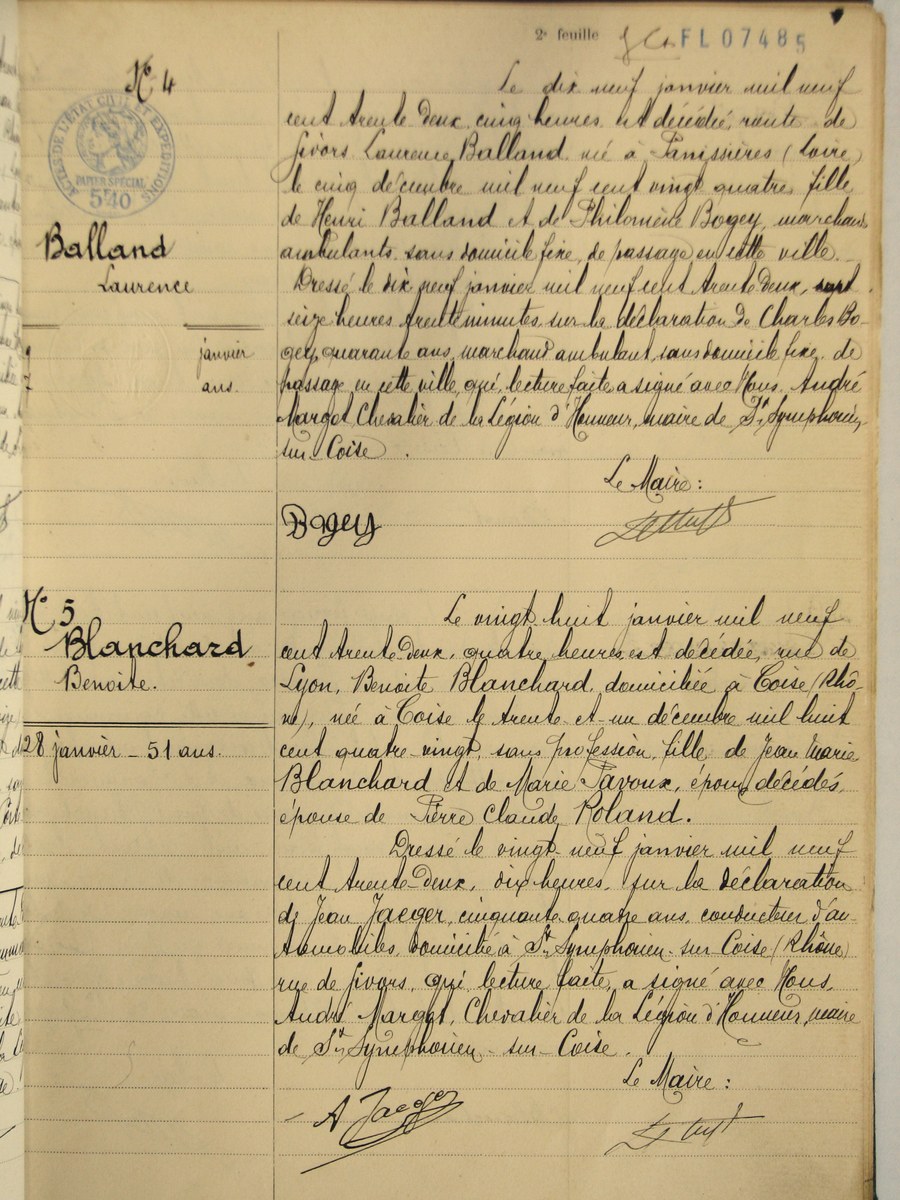 2e feuille
FL 07485
N° 4
ACTES DE L'ÉTAT CIVIL ET EXPÉDITIONS
PAPIER SPÉCIAL
5F40
Balland
Laurence
9 janvier
7 ans.
Le dix neuf janvier mil neuf
cent trente deux, cinq heures est décédée, route de
Givors Laurence Balland née à Panissières (Loire)
le cinq décembre mil neuf cent vingt quatre fille
de Henri Balland et de Philomène Bogey, marchands
ambulants sans domicile fixe, de passage en cette ville.
Dressé le dix neuf janvier mil neuf cent trente deux,
seize heures trente minutes, sur la déclaration de Charles Bo-
gey, quarante ans, marchand ambulant, sans domicile fixe, de
passage en cette ville, qui, lecture faite a signé avec Nous, André
Margot Chevalier de la Légion d'Honneur, maire de St Symphorien
sur-Coise.
Le Maire :
Bogey
N° 5
Blanchard
Benoite.
28 janvier - 51 ans.
Le vingt huit janvier mil neuf
cent trente-deux, quatre heures est décédée, rue de
Lyon, Benoite Blanchard, domiciliée à Coise (Rhô-
ne), née à Coise le trente-et-un décembre mil huit
cent quatre-vingt, sans profession, fille de Jean Marie
Blanchard et de Marie Pavoux, époux décédés,
épouse de Pierre Claude Roland.
Dressé le vingt-neuf janvier mil neuf
cent trente-deux, dix heures, sur la déclaration
de Jean Jaeger, cinquante quatre ans, conducteur d'au-
tomobiles, domicilié à St Symphorien-sur-Coise (Rhône)
rue de Givors, qui, lecture faite, a signé avec Nous,
André Margot, Chevalier de la Légion d'Honneur, maire
de St Symphorien-sur-Coise.
Le Maire :
A Jaeger